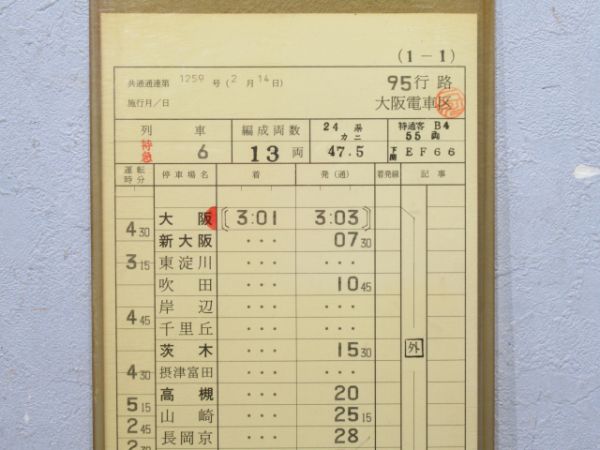 (1－1)
共通通達第 1259 号(2月14日)
95行路
施行月／日
大阪電車区
列車
編成両数
24系
カニ
特通客 B4
55 両
特急
6
13両
47.5
下関 EF66
運転時分
停車場名
着
発(通)
着発線
記事
大阪 〔3:01 3:03〕
4 30
新大阪 ・・・ 07 30
3 15
東淀川 ・・・ ・・・
吹田 ・・・ 10 45
岸辺 ・・・ ・・・
4 45
千里丘 ・・・ ・・・
茨木 ・・・ 15 30
外
4 30
摂津富田 ・・・ ・・・
高槻 ・・・ 20
5 15
山崎 ・・・ 25 15
2 45
長岡京 ・・・ 28